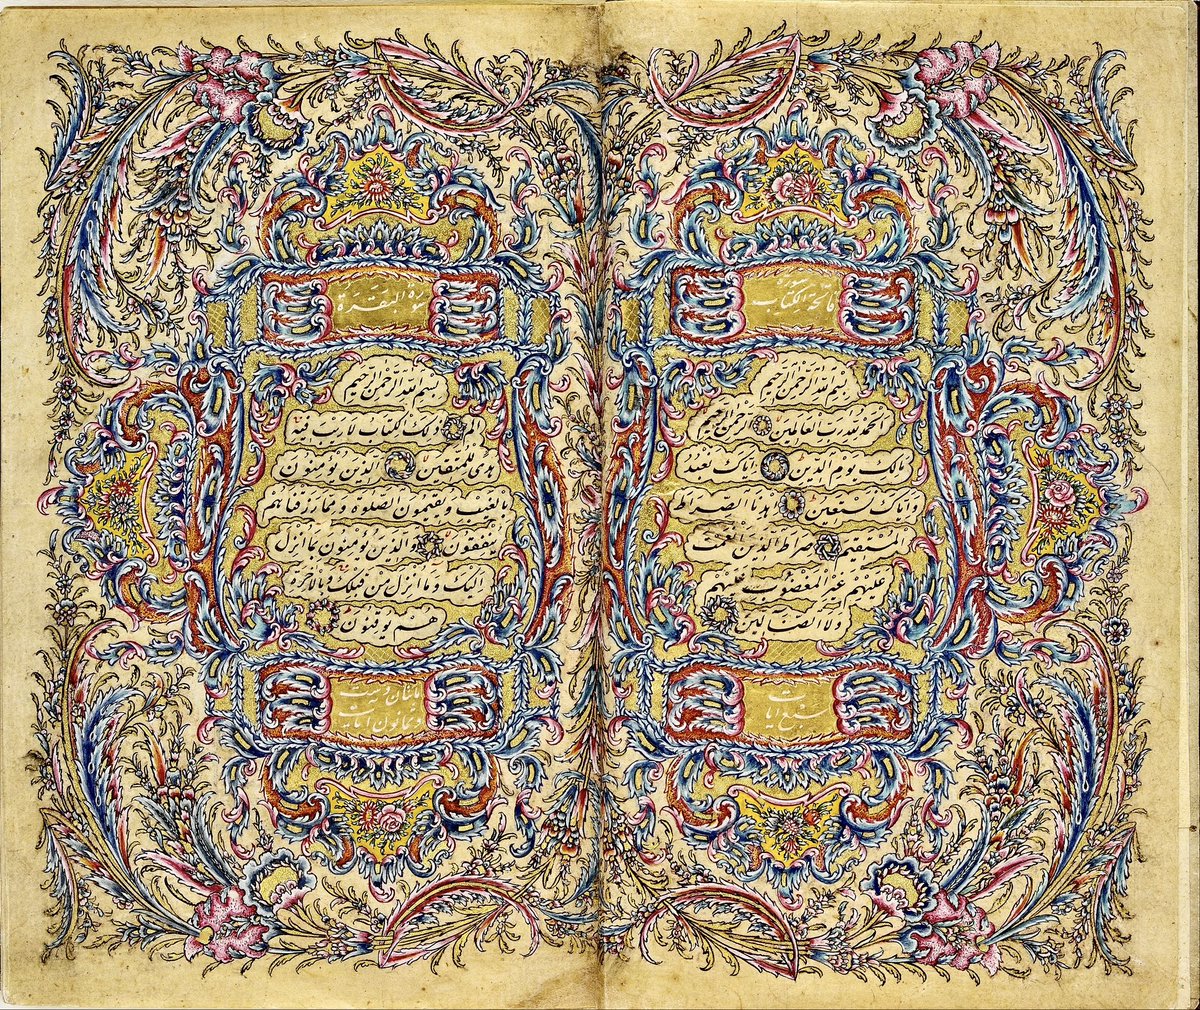 سورة
فاتحة الكتاب
بسم الله الرحمن الرحيم
الحمد لله رب العالمين الرحمن الرحيم
مالك يوم الدين اياك نعبد
واياك نستعين اهدنا الصراط
المستقيم صراط الذين انعمت
عليهم غير المغضوب عليهم
ولا الضالين
سبع ايات
سورة البقرة
بسم الله الرحمن الرحيم
الم ذلك الكتاب لا ريب فيه
هدى للمتقين الذين يؤمنون
بالغيب ويقيمون الصلوة ومما رزقناهم
ينفقون والذين يؤمنون بما انزل
اليك وما انزل من قبلك وبالاخرة
هم يوقنون
مائتان وست
وثمانون ايات